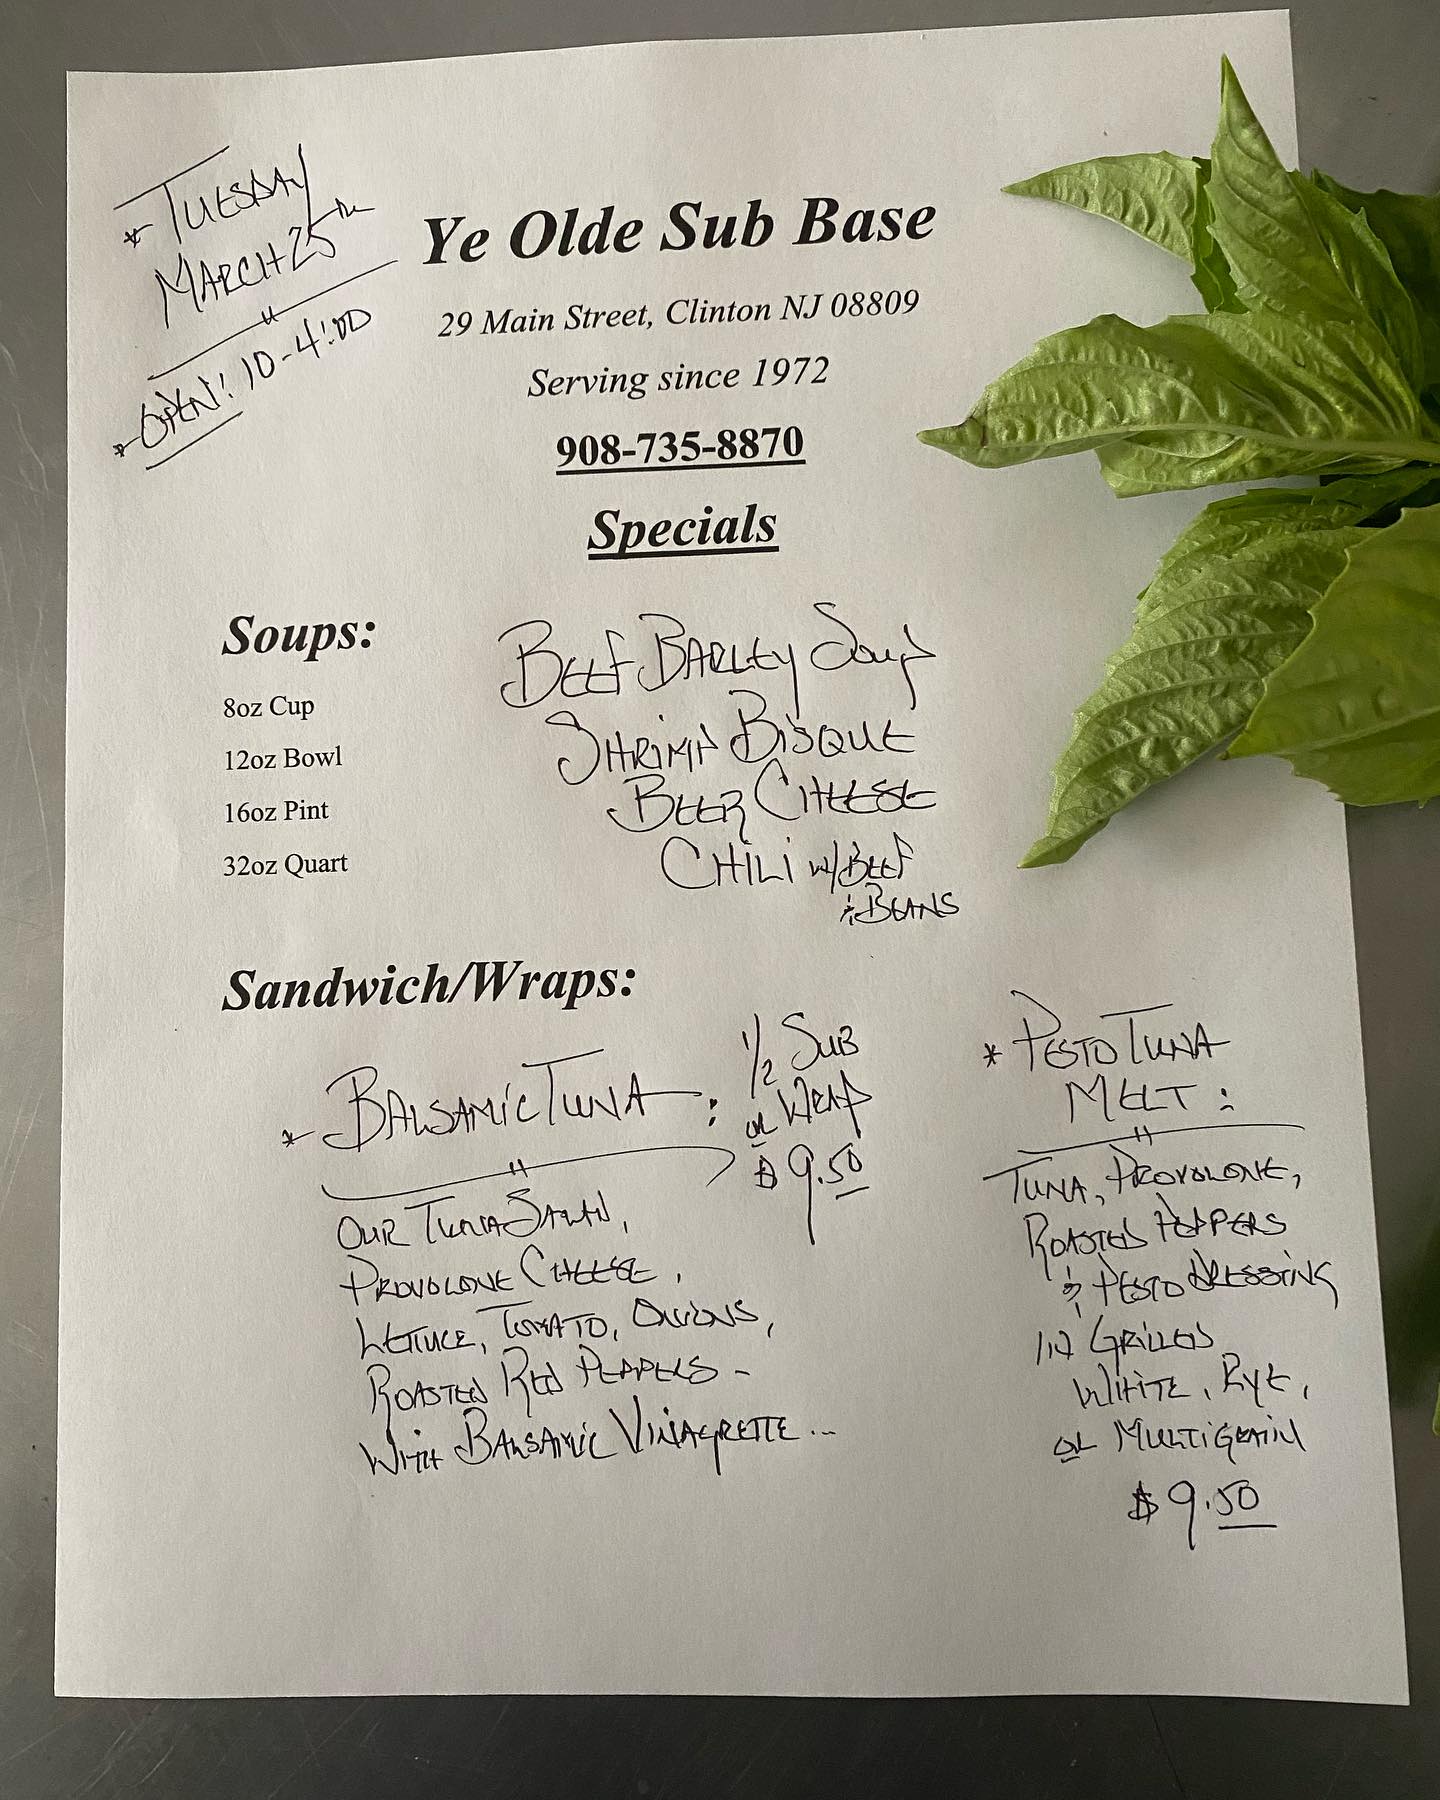 * TUESDAY
MARCH 25TH
* OPEN: 10-4:00
Ye Olde Sub Base
29 Main Street, Clinton NJ 08809
Serving since 1972
908-735-8870
Specials
Soups:
8oz Cup
12oz Bowl
16oz Pint
32oz Quart
BEEF BARLEY SOUP
SHRIMP BISQUE
BEER CHEESE
CHILI W/ BEEF
& BEANS
Sandwich/Wraps:
* BALSAMIC TUNA :
1/2 SUB
OR WRAP
$9.50
OUR TUNA SALAD,
PROVOLONE CHEESE,
LETTUCE, TOMATO, ONIONS,
ROASTED RED PEPPERS -
WITH BALSAMIC VINAGRETTE...
* PESTO TUNA
MELT :
TUNA, PROVOLONE,
ROASTED PEPPERS
& PESTO DRESSING
IN GRILLED
WHITE, RYE,
OR MULTIGRAIN
$9.50